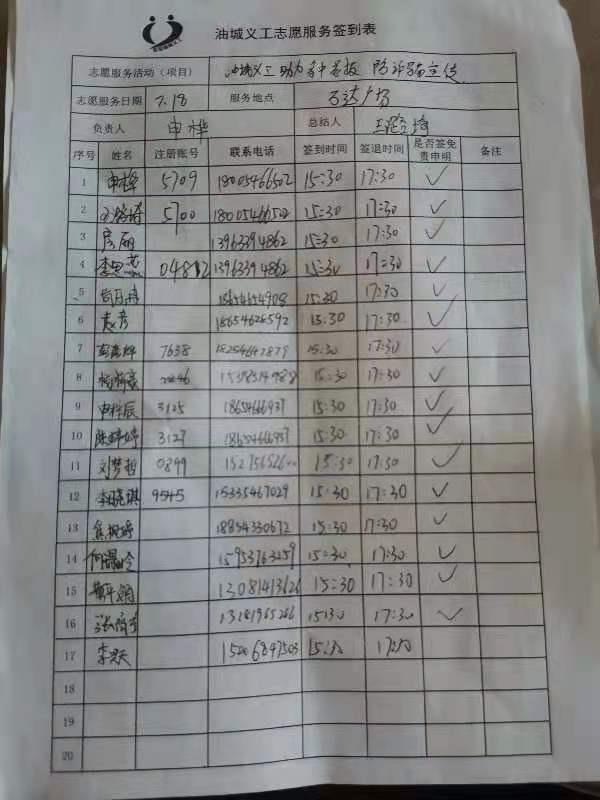 油城义工志愿服务签到表
志愿服务活动（项目） 油城义工助力 防诈骗宣传
志愿服务日期 7.18 服务地点 万达广场
负责人 申桦 总结人
序号 姓名 注册账号 联系电话 签到时间 签退时间 是否签免责申明 备注
1 申桦 5709 18005466502 15:30 17:30 ✓
2 5700 18005466502 15:30 17:30 ✓
3 房丽 13963394862 15:30 17:30 ✓
4 李思燕 13963394862 15:30 17:30 ✓
5 18654654908 15:30 17:30 ✓
6 袁彦 18654626592 15:30 17:30 ✓
7 7638 15:30 17:30 ✓
8 15:30 17:30 ✓
9 申梓辰 3125 18654666937 15:30 17:30 ✓
10 3127 18654666937 15:30 17:30 ✓
11 刘梦哲 0899 15:30 17:30 ✓
12 李晓琪 9545 15335467029 15:30 17:30 ✓
13 18854330672 15:30 17:30 ✓
14 15953763259 15:30 17:30 ✓
15 13081413626 15:30 17:30 ✓
16 13181965266 15:30 17:30 ✓
17 15206897503 15:30 17:30
18
19
20